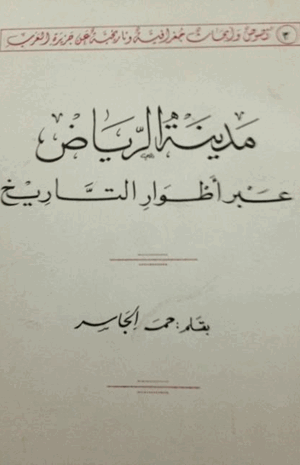 ٣ نصوص وأبحاث جغرافية وتاريخية عن جزيرة العرب
مَدينَة الرِّيَاض
عَبر أطوَار التَّاريخ
بقلم: حمد الجاسر